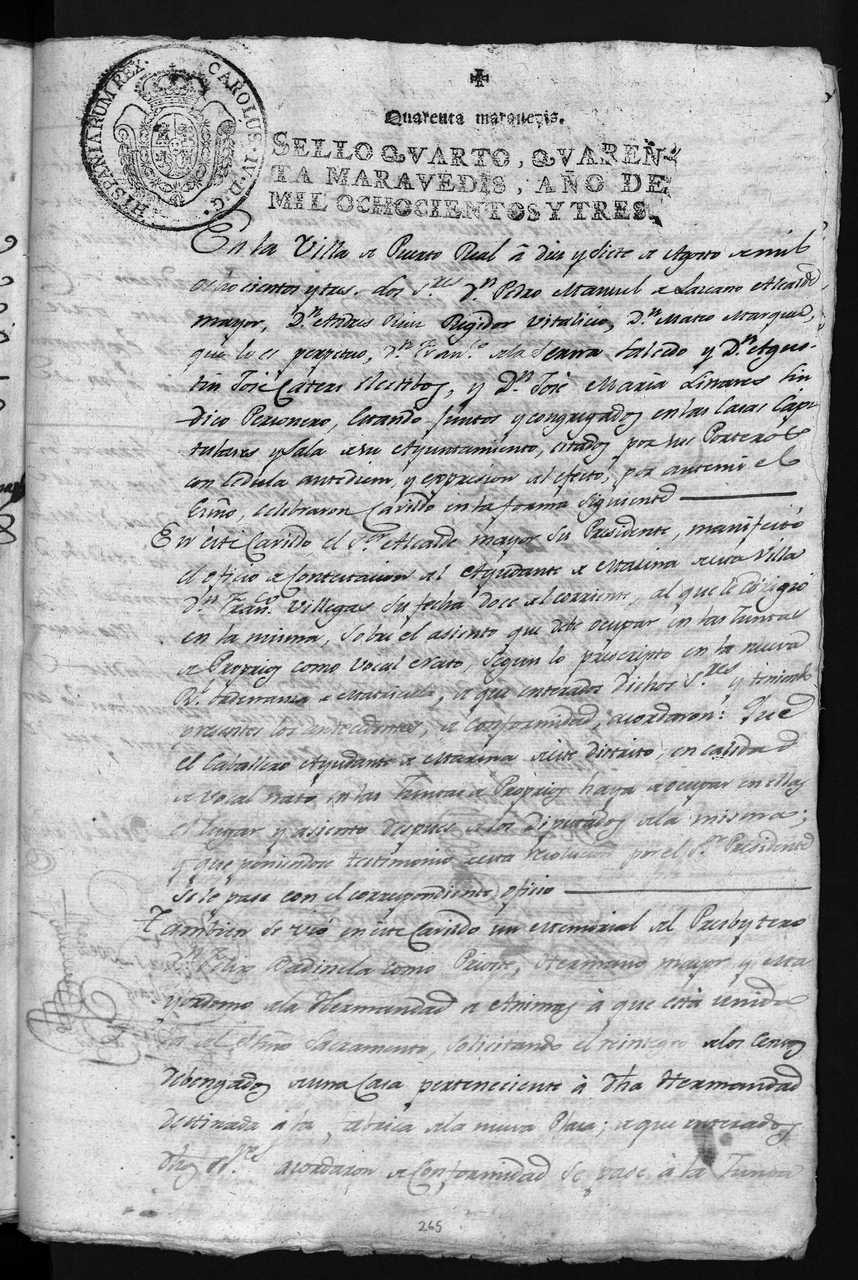 HISPANIARUM REX. CAROLUS. IV. D. G.
Quarenta marauedis.
SELLO QVARTO, QVAREN-
TA MARAVEDIS, AÑO DE
MIL OCHOCIENTOS Y TRES.
En la Villa de Puerto Real â diez y siete de Agosto de mil
ochocientos y tres. Los S.res D.n Pedro Manuel de Lazcano Alcalde
mayor, D.n Andres Regidor Vitalicio, D.n Mateo Marquez,
que lo es perpetuo, D.n Fran.co de la Serna Salcedo y D.n Agus-
tin José Diputados, y D.n José Maria Linares Sin-
dico Personero, Estando juntos y congregados en las Casas Capi-
tulares y Sala de su Ayuntamiento, citados por sus Porteros
con Cedula antediem, y expresion al efecto, por ante mi el
Esñno, celebraron Cavildo en la forma siguiente
En este Cavildo el S.or Alcalde mayor su Presidente, manifestó
el oficio de Contestacion del Ayudante de Marina de esta Villa
D.n Fran.co Villegas su fecha doce del corriente, al que le dirigió
en la misma, sobre el asiento que debe ocupar en las Juntas
de Propios como vocal nato, segun lo prescripto en la nueva
R.l Ordenanza de Matriculas, de que enterados dichos S.res y teniendo
presentes los antecedentes, de conformidad, acordaron: Que
el Caballero Ayudante de Marina de este distrito, en calidad
de vocal nato en las Juntas de Propios haya de ocupar en ellas
el lugar y asiento despues de los Diputados de la misma;
y que poniendose testimonio de esta resolucion por el S.or Presidente
se le pase con el correspondiente oficio
Tambien se vió en este Cavildo un Memorial del Presbytero
D.n Felix como Prioste, Hermano mayor y Ma-
yordomo de la Hermandad de Animas â que está unida
la del Ssño Sacramento, solicitando el reintegro de los Censos
debengados de una Casa perteneciente â dha Hermandad
destinada â la fabrica de la nueva Plaza; de que enterados
dhos SS.res acordaron de Conformidad se pase â la Junta
265